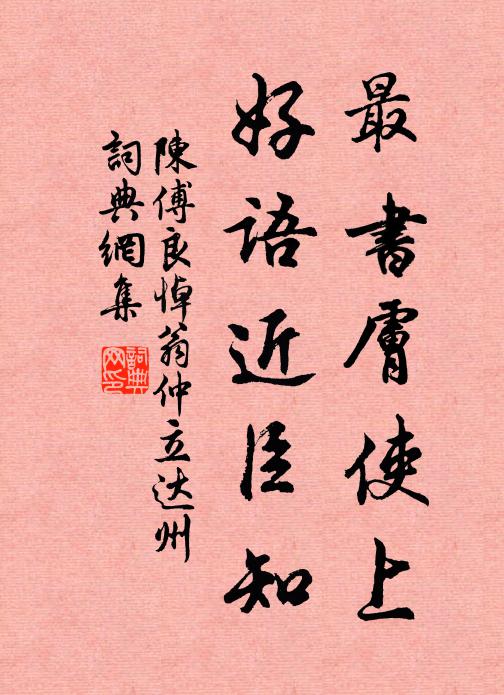 最書膚使上
好語近臣知
陳傅良悼翁仲立达州
詞典網集
詞典
网印